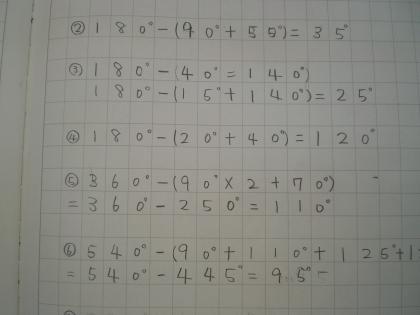 ② 180°-(90°+55°)=35°
③ 180°-(40°=140°)
180°-(15°+140°)=25°
④ 180°-(20°+40°)=120°
⑤ 360°-(90°×2+70°)
=360°-250°=110°
⑥ 540°-(90°+110°+125°+1
=540°-445°=95°